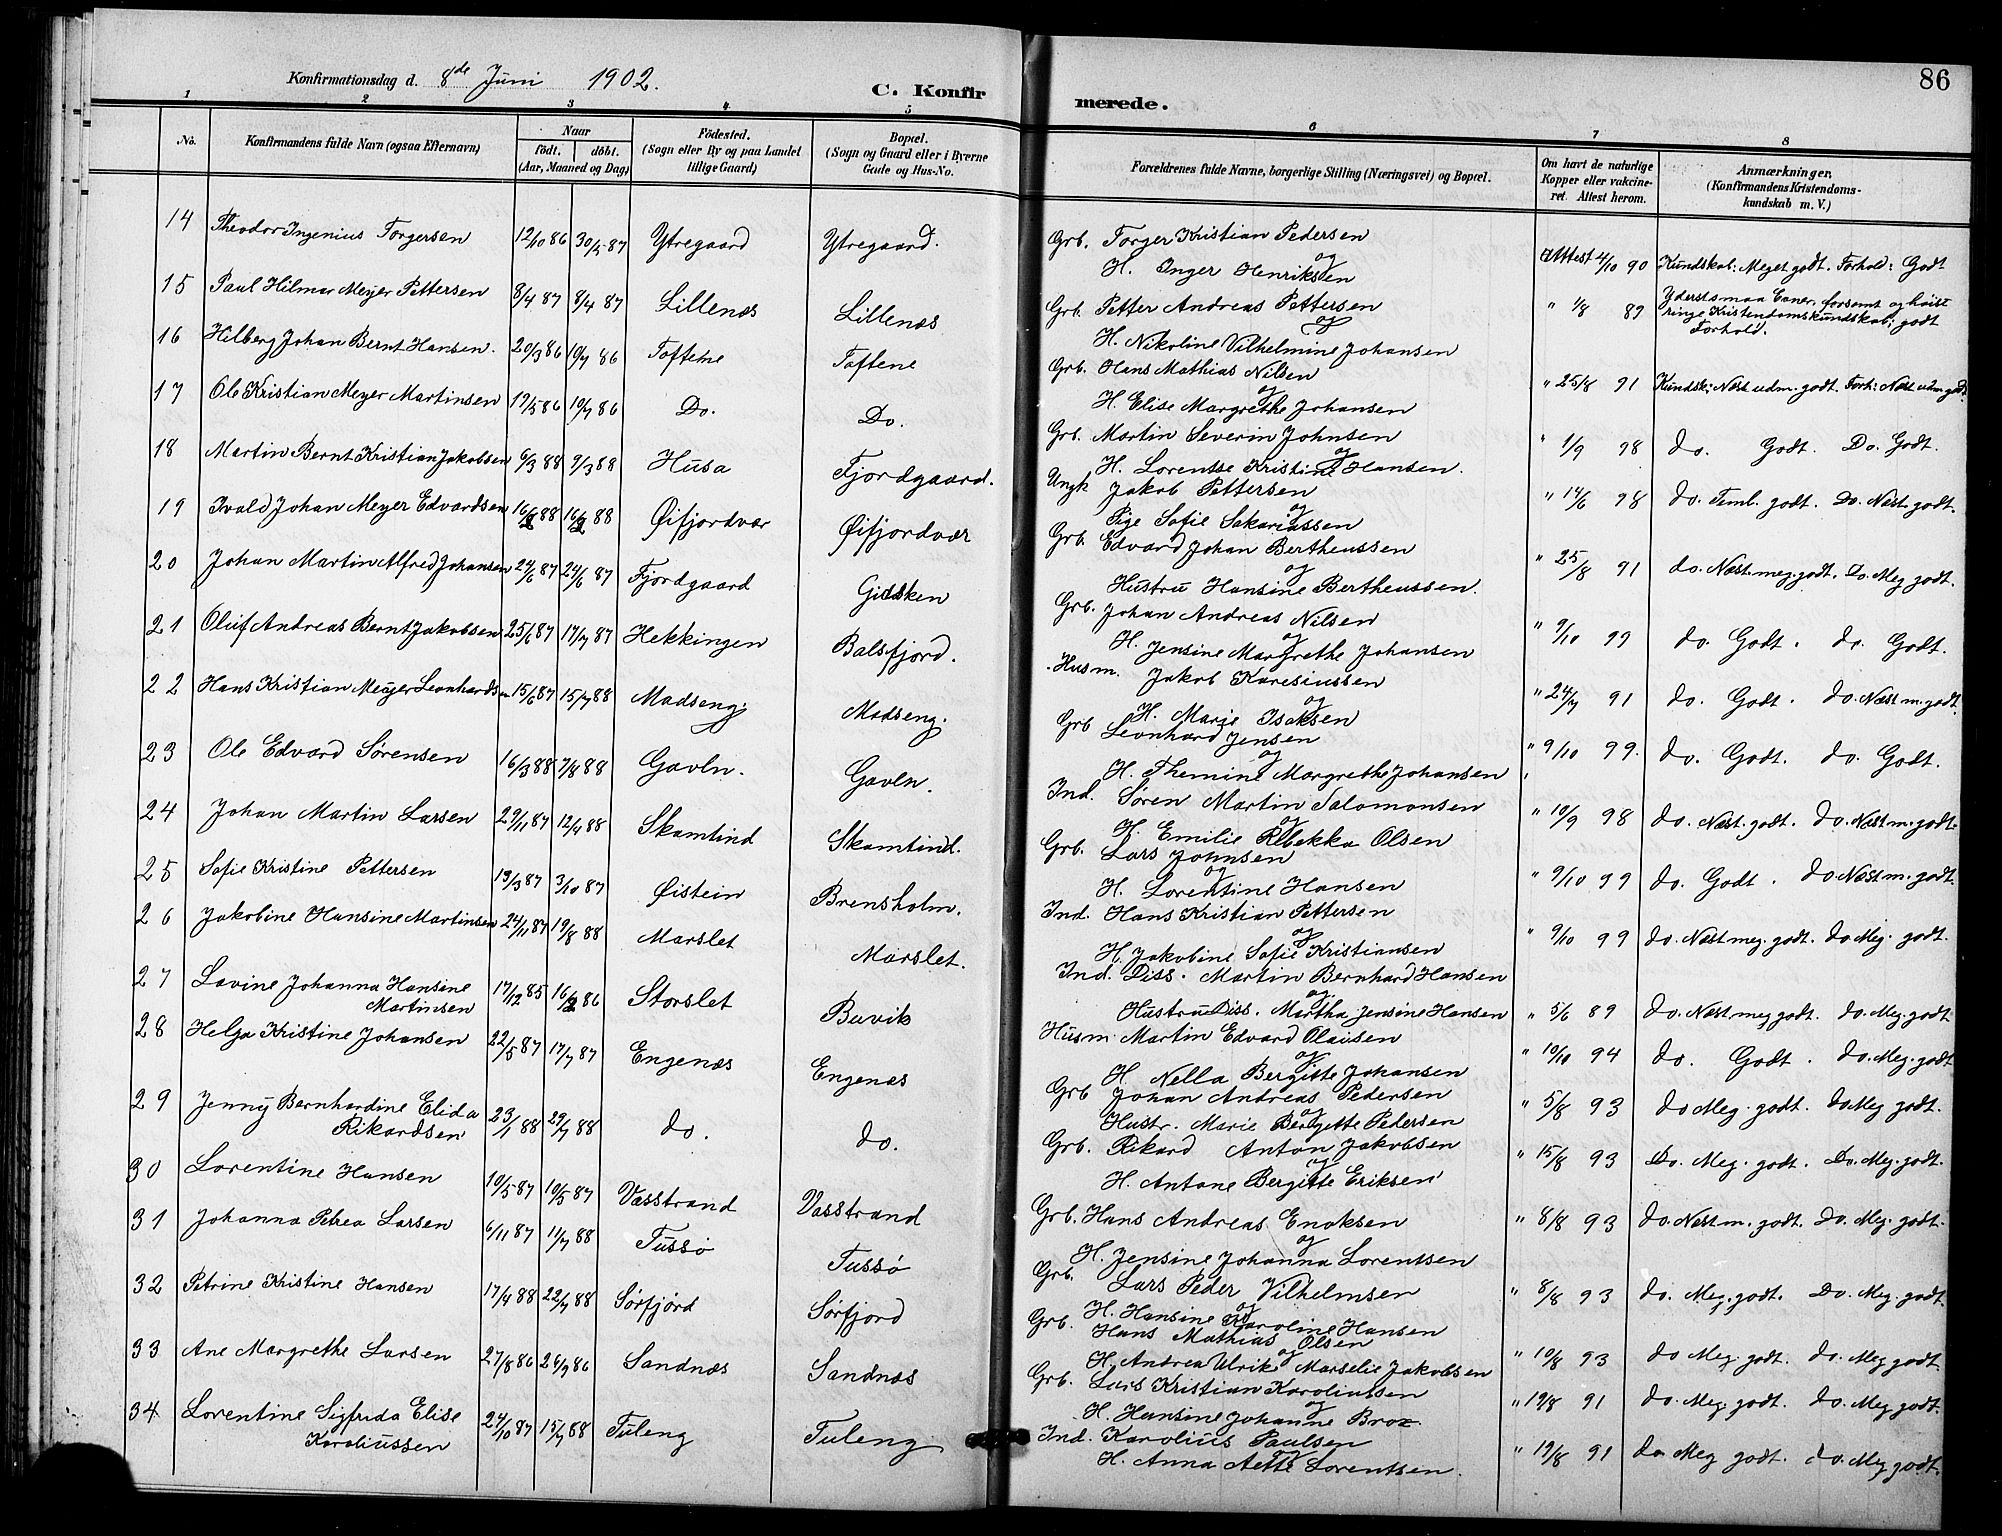 86
Konfirmationsdag d. 8de Juni 1902.
C. Konfirmerede.
1 2 3 4 5 6 7 8
No. Konfirmandens fulde Navn (ogsaa Efternavn) Naar födt. döbt. (Aar, Maaned og Dag) Födested. (Sogn eller By og paa Landet tillige Gaard) Bopæl. (Sogn og Gaard eller i Byerne Gade og Hus-No. Forældrenes fulde Navne, borgerlige Stilling (Næringsvei) og Bopæl. Om havt de naturlige Kopper eller vakcineret. Attest herom. Anmærkninger. (Konfirmandens Kristendomskundskab m. V.)
14 Theodor Ingenius Torgersen 12/10 86 30/5 87 Ytregaard Ytregaard. Grb. Torger Kristian Pedersen og H. Inger Henriksen Attest 4/10 90 Kundskab: Meget godt. Forhold: Godt
15 Paul Hilmar Meyer Pettersen 8/4 87 8/4 87 Lillenæs Lillenæs Grb. Petter Andreas Pettersen og H. Nikoline Vilhelmine Johansen " 1/8 89 Yderst smaa Evner, forsømt og høist ringe Kristendomskundskab; godt Forhold.
16 Hilberg Johan Bernt Hansen. 20/3 86 19/7 86 Toftene Toftene Grb. Hans Mathias Nilsen og H. Elise Margrethe Johansen " 25/8 91 Kundsk: Næst udm. godt. Forh: Næst udm. godt.
17 Ole Kristian Meyer Martinsen 19/5 86 19/7 86 Do. Do. Grb. Martin Severin Johnsen og H. Lorentse Kristine Hansen. " 1/9 98 do. Godt. Do. Godt.
18 Martin Bernt Kristian Jakobsen 6/3 88 9/3 88 Husa Fjordgaard. Ungk Jakob Pettersen og Pige Sofie Sakariassen " 14/6 98 do. Teml. godt. Do. Næst. godt.
19 Ivald Johan Meyer Edvardsen 16/2 88 16/2 88 Øifjordvær Øifjordvær Grb. Edvard Johan Bertheussen og Hustru Hansine Bertheussen. " 25/8 91 do. Næst. meg. godt. Do. Meg godt.
20 Johan Martin Alfred Johansen 24/6 87 24/6 87 Fjordgaard Gidsken Grb. Johan Andreas Nilsen og H. Jensine Margrethe Johansen " 9/10 99 do. Godt. do. Godt.
21 Oluf Andreas Bernt Jakobsen 25/6 87 17/7 87 Hekkingen Balsfjord. Husm. Jakob Karesiussen og H. Marie Isaksen " 24/7 91 do. Godt. do. Næst m. godt.
22 Hans Kristian Meyer Leonhardsen 15/6 87 15/7 88 Madseng. Madseng. Grb Leonhard Jensen og H. Themine Margrethe Johansen " 9/10 99. do. Godt. do. Godt.
23 Ole Edvard Sørensen 16/3 88 7/8 88 Gavln. Gavln. Ind. Søren Martin Salomonsen og H. Emilie Rebekka Olsen " 10/9 98 do. Næst. godt. do. Næst m. godt.
24 Johan Martin Larsen 29/11 87 12/4 88 Skamtind Skamtind. Grb. Lars Johnsen og H. Lorentine Hansen " 9/10 99 do. Godt. do. Næst m. godt.
25 Sofie Kristine Pettersen 19/3 87 3/10 87 Øistein Brensholm. Ind. Hans Kristian Pettersen og H. Jakobine Sofie Kristiansen " 9/10 99 do. Næst meg. godt. do Meg. godt.
26 Jakobine Hansine Martinsen 24/11 87 19/8 88 Marslet Marslet. Ind. Diss. Martin Bernhard Hansen og Hustru Diss. Martha Jensine Hansen " 5/6 89 do. Næst meg godt. do. Meg. godt
27 Lavine Johanna Hansine Martinsen 17/12 85 16/2 86 Storslet Buvik Husm. Martin Edvard Olausen og H. Nella Bergitte Johansen " 10/10 94 do. Godt. do. Meg. godt
28 Helga Kristine Johansen 22/5 87 17/7 87 Engenæs Engenæs Grb Johan Andreas Pedersen og Hustr. Marie Bergette Pedersen " 5/8 93 do Meg. godt. do Meg godt.
29 Jenny Bernhardine Elida Rikardsen 23/1 88 29/7 88 do. do. Grb. Rikard Anton Jakobsen og H. Antone Bergitte Eriksen " 15/8 93 Do. Meg. godt. Do. Meg. godt.
30 Lorentine Hansen 10/5 87 10/5 87 Vasstrand Vasstrand Grb. Hans Andreas Enoksen og H. Jensine Johanna Lorentsen " 8/8 93 do. Næst m. godt. do. Meg. godt.
31 Johanna Petrea Larsen 6/11 87 11/7 88 Tussø Tussø Grb. Lars Peder Vilhelmsen og H. Hansine Karoline Hansen " 8/8 93 do. Meg. godt. Do. Meg. godt.
32 Petrine Kristine Hansen 17/4 88 22/7 88 Sørfjord Sørfjord Grb. Hans Mathias Olsen og H. Andrea Ulrik Marselie Jakobsen " 10/8 93 do Meg. godt. do. Meg godt.
33 Ane Margrethe Larsen 27/8 86 26/9 86 Sandnæs Sandnæs Grb. Lars Kristian Karoliussen og H. Hansine Johanne Brox. " 19/8 91 do. Meg. godt. do. Meg. godt.
34 Lorentine Sigfrida Elise Karoliussen 24/10 87 15/7 88 Tuleng Tuleng Ind. Karolius Paulsen og H. Anna Aette Lorentsen. " 19/8 91 do Meg godt. do. Meg godt.